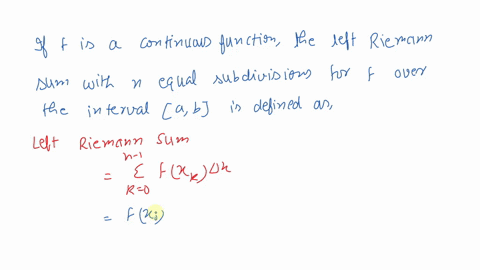 If f is a continuous function, the left Riemann
sum with n equal subdivisions for f over
the interval [a,b] is defined as,
Left Riemann Sum
n-1
= Σ f(xₖ) Δx
K=0
= f(x₀)